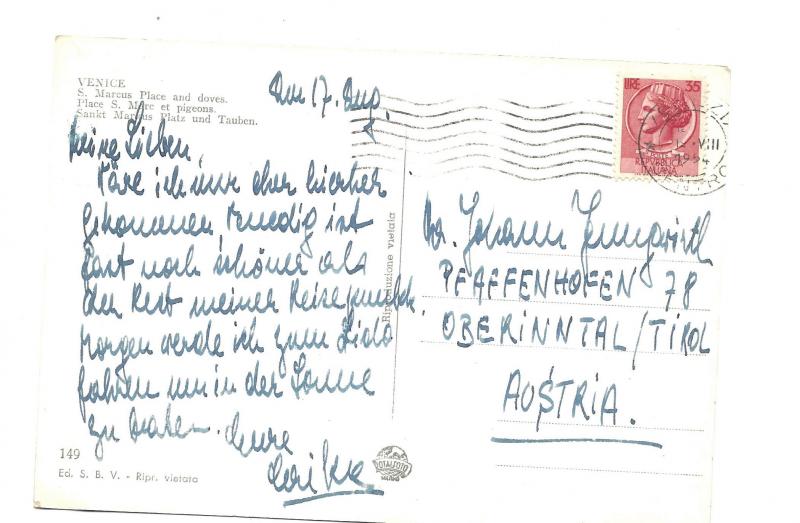 VENICE
S. Marcus Place and doves.
Place S. Marc et pigeons.
Sankt Marcus Platz und Tauben.
Am 17. Aug.
Meine Lieben,
Wäre ich nur eher hierher
gekommen, Venedig ist
fast noch schöner als
der Rest meiner Reise
Morgen werde ich zum Lido
fahren um in der Sonne
zu braten. Eure
Erika
149
Ed. S. B. V. - Ripr. vietata
Riproduzione vietata
LIRE 35
POSTE
REPVBBLICA
ITALIANA
VIII
1954
Johann
PFAFFENHOFEN 78
OBERINNTAL/TIROL
AUSTRIA.
TOTALFOTO
MILANO